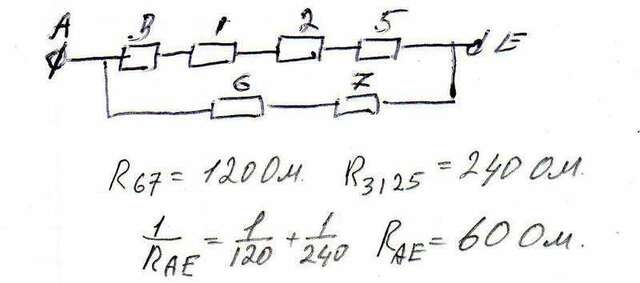 A 3 1 2 5 E
6 7
R67 = 120 Ом. R3125 = 240 Ом.
1/RAE = 1/120 + 1/240 RAE = 60 Ом.